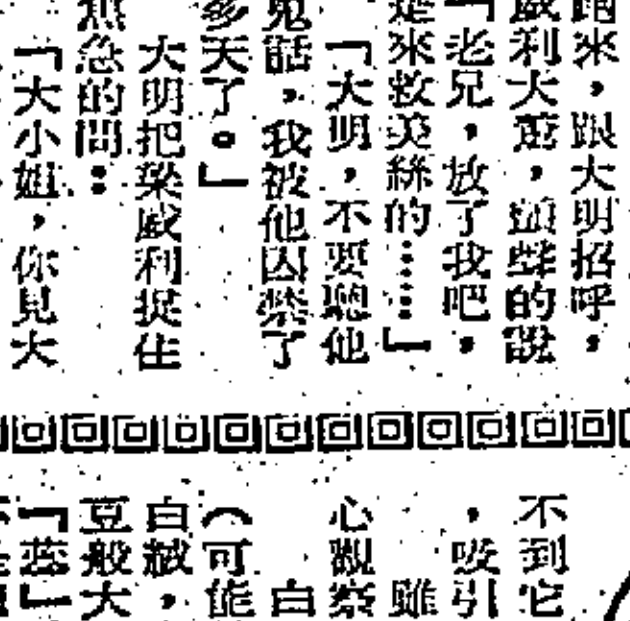 跑來，跟大明招呼，
威利大驚，顫聲的說
「老兄，放了我吧，
是來救美絲的……」
「大明，不要聽他
鬼話，我被他囚禁了
多天了。」
大明把梁威利捉住
焦急的問：
「大小姐，你見大
不到它
，吸引
雖
心觀察
白
（可能
白皴，
豆般大
「蕊」